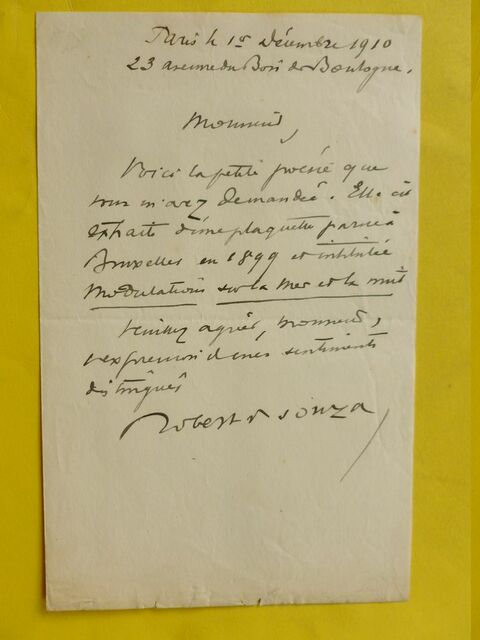 Paris le 1er Décembre 1910
23 avenue du Bois de Boulogne.
Monsieur,
Voici la petite poésie que
vous m'avez demandée. Elle est
extraite d'une plaquette parue à
Bruxelles en 1899 et intitulée
Modulations sur la Mer et la nuit
Veuillez agréer, Monsieur,
l'expression de mes sentiments
distingués
Robert de Souza